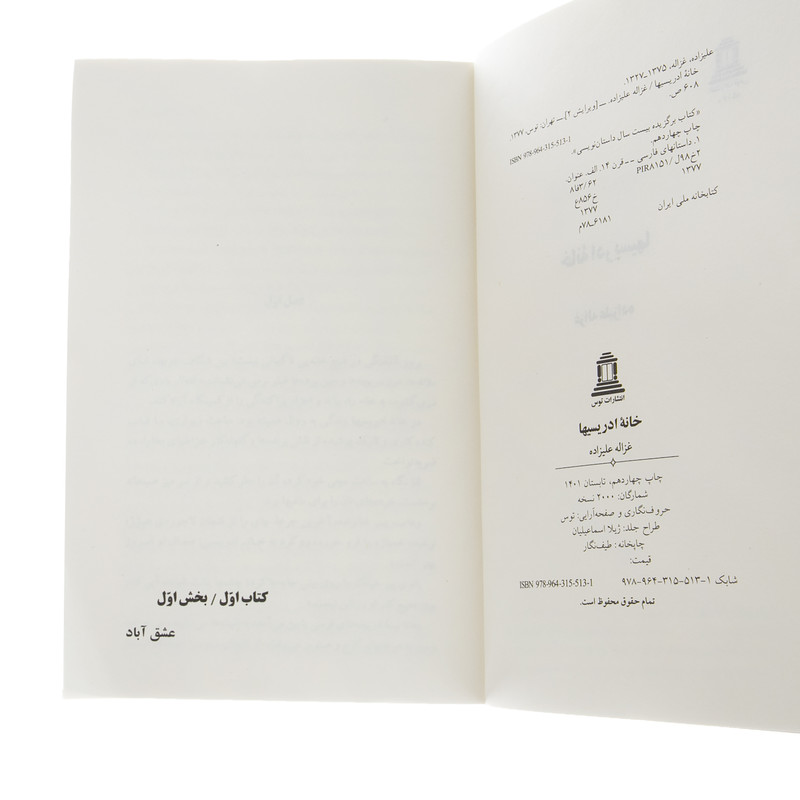 علیزاده، غزاله، ۱۳۷۵_۱۳۲۷.
خانهٔ ادریسیها / غزاله علیزاده. _ [ویرایش ۲]._ تهران: توس، ۱۳۷۷.
۶۰۸ ص.
ISBN 978-964-315-513-1
«کتاب برگزیده بیست سال داستان‌نویسی».
چاپ چهاردهم.
۱. داستانهای فارسی -- قرن ۱۴. الف. عنوان.
۲خ۹۸ل/ PIR۸۱۵۱
۸فا۳/۶۲
۱۳۷۷
خ۸۵۶ع
۱۳۷۷
کتابخانه ملی ایران
۶۱۸۱_۷۸م
انتشارات توس
خانهٔ ادریسیها
غزاله علیزاده
چاپ چهاردهم، تابستان ۱۴۰۱
شمارگان: ۲۰۰۰ نسخه
حروف‌نگاری و صفحه‌آرایی: توس
طراح جلد: ژیلا اسماعیلیان
چاپخانه: طیف‌نگار
قیمت:
شابک ۱-۵۱۳-۳۱۵-۹۶۴-۹۷۸ ISBN 978-964-315-513-1
تمام حقوق محفوظ است.
کتاب اوّل / بخش اوّل
عشق آباد